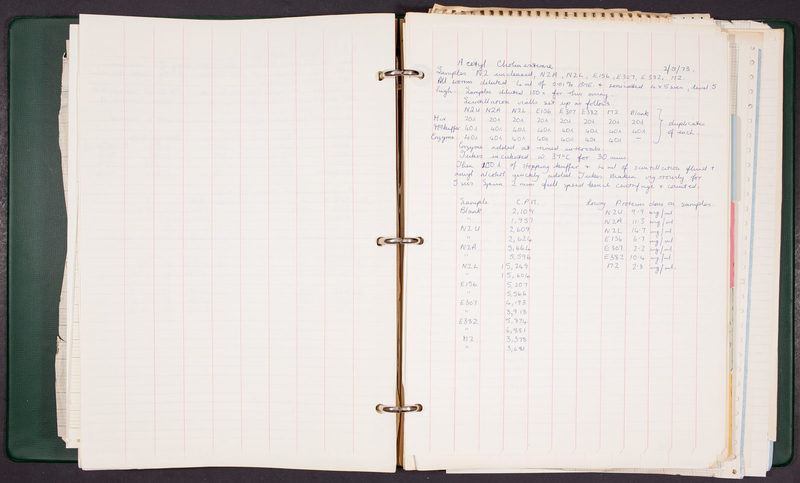 Acetyl Cholinesterase 2/8/73.
Samples N2 uncleaned, N2A, N2L, E156, E307, E382, M2
All worms diluted ml of 0.01% BME & sonicated 4 x 5 sec, level 5
high. Samples diluted 100x for this assay.
Scintillation vials set up as follows
N2U N2A N2L E156 E307 E382 M2 Blank
Mix 20λ 20λ 20λ 20λ 20λ 20λ 20λ 20λ } duplicates
buffer 40λ 40λ 40λ 40λ 40λ 40λ 40λ 40λ of each.
Enzyme 40λ 40λ 40λ 40λ 40λ 40λ 40λ —
Enzyme added at timed intervals.
Tubes incubated @ 37°C for 30 mins
Then 100λ of stopping buffer + ml of scintillation fluid +
amyl alcohol quickly added. Tubes shaken vigorously for
5 secs spun 2 min full speed bench centrifuge & counted.
Sample C.P.M. Lowry Protein done on samples.
Blank 2,109 N2U 9.9 mg/ml
1,957 N2A 11.3 mg/ml
N2U 2,609 N2L 14.7 mg/ml
" 2,624 E156 6.7 mg/ml
N2A 5,664 E307 2.2 mg/ml
" 5,596 E382 10.4 mg/ml
N2L 15,249 M2 2.8 mg/ml.
" 15,604
E156 5,207
" 5,566
E307 4,193
" 3,918
E382 5,974
" 6,551
M2 3,578
" 3,681